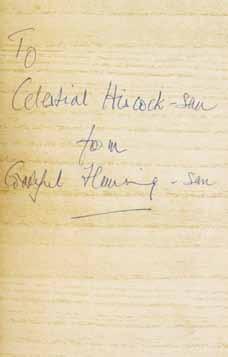 To
Celestial Hiscock-san
from
Grateful Fleming-san